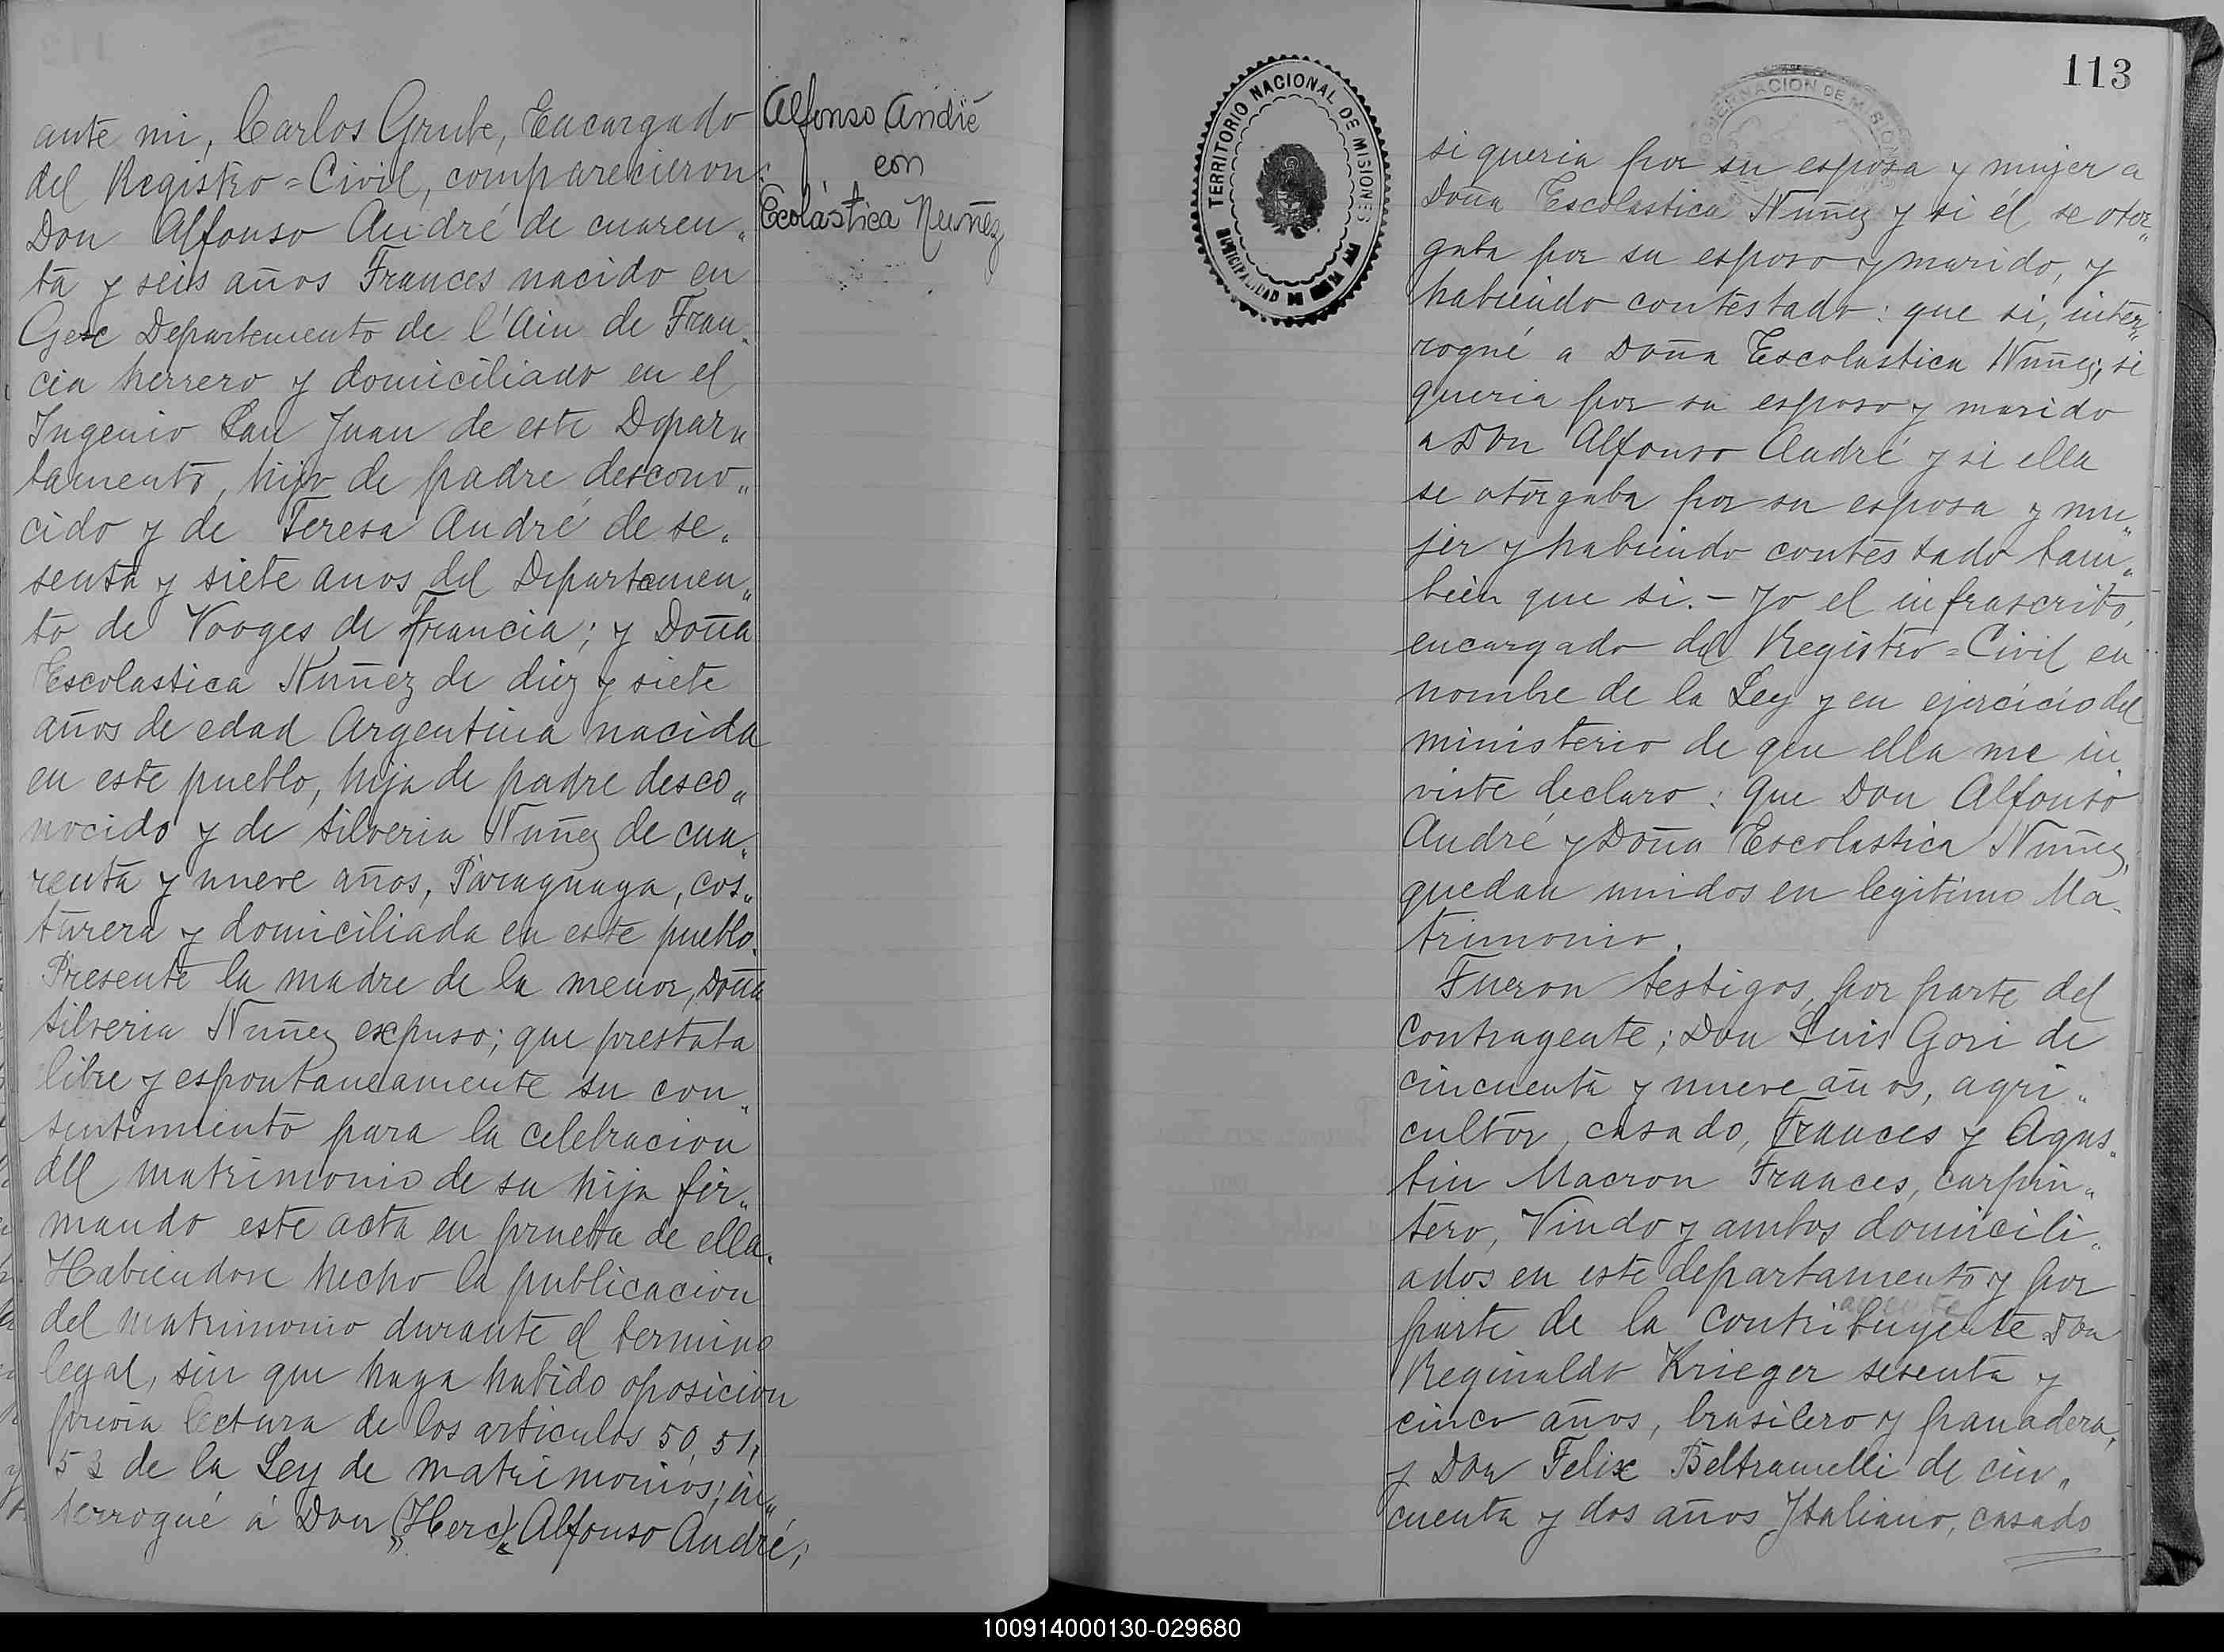 ante mi, Carlos Grube, Encargado
del Registro=Civil, comparecieron:
Don Alfonso André de cuaren„
ta y seis años Frances nacido en
Gex Departemento de l'Ain de Fran„
cia herrero y domiciliado en el
Ingenio San Juan de este Depar„
tamento, hijo de padre descono„
cido y de Teresa André de se„
senta y siete anos del Departamen„
to de Vosges de Francia; y Doña
Escolastica Nuñez de diez y siete
años de edad Argentina nacida
en este pueblo, hija de padre desco„
nocido y de Silveria Nuñez de cua„
renta y nueve años, Paraguaya, cos„
turera y domiciliada en este pueblo.
Presente la madre de la menor, Doña
Silveria Nuñez expuso; que prestaba
libre y espontaneamente su con„
sentimiento para la celebracion
del matrimonio de su hija fir„
mando este acta en prueba de ella.
Habiendose hecho la publicacion
del matrimonio durante el termino
legal, sin que haya habido oposicion
previa lectura de los articulos 50, 51,
53 de la Ley de matrimonios; in„
terrogué á Don („Herc)„ Alfonso André,
Alfonso André
con
Ecolástica Nuñez
TERRITORIO NACIONAL DE MISIONES
MUNICIPALIDAD
GOBERNACION DE MISIONES
113
si queria por su esposa y mujer a
Doña Escolastica Nuñez y si él se otor„
gaba por su esposo y marido, y
habiendo contestado: que si, inter„
rogué a Doña Escolastica Nuñez, si
queria por su esposo y marido
a Don Alfonso André y si ella
se otorgaba por su esposa y mu„
jer y habiendo contestado tam„
bien que si. - Yo el infrascrito,
encargado del Registro=Civil en
nombre de la Ley y en ejercicio del
ministerio de qeu ella me in
viste declaro: Que Don Alfonso
André y Doña Escolastica Nuñez,
quedan unidos en legitimo Ma„
trimonio.
Fueron testigos, por parte del
Contragente; Don Luis Gori de
cincuenta y nueve años, agri„
cultor, casado, Frances y Agus„
tin Macron Frances, carpin„
tero, Viudo y ambos domicili„
ados en este departamento y por
parte de la contribuyente Don
Reginaldo Krieger sesenta y
cinco años, brasilero y panadera,
y Don Felix Beltramelli de cin„
cuenta y dos años Italiano, casado
100914000130-029680